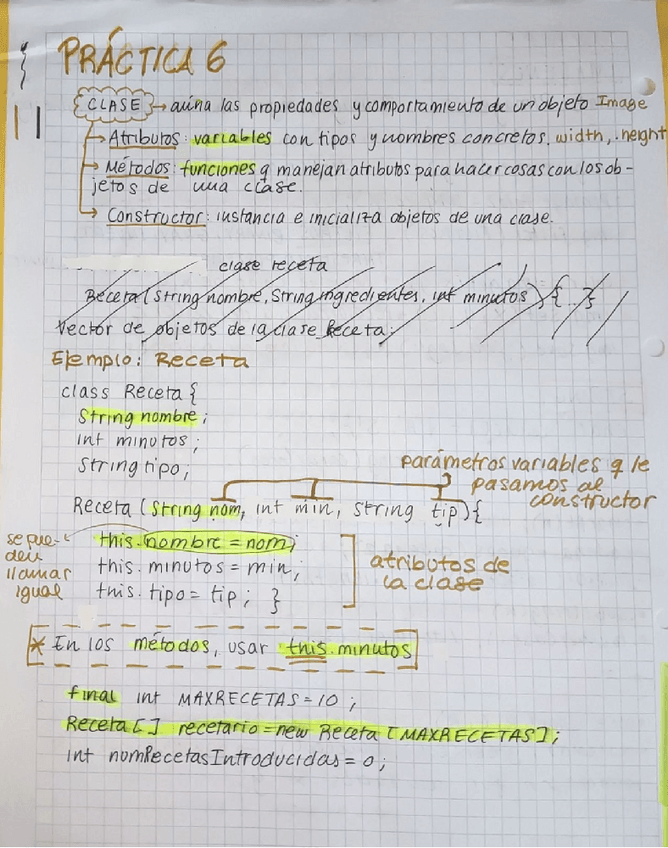 PRÁCTICA 6
CLASE → aúna las propiedades y comportamiento de un objeto Image
→ Atributos: variables con tipos y nombres concretos, width, height
→ Métodos: funciones q manejan atributos para hacer cosas con los ob-
jetos de una clase.
→ Constructor: instancia e inicializa objetos de una clase.
clase receta
Receta (String nombre, String ingredientes, int minutos) { }
Vector de objetos de la clase Receta:
Ejemplo: Receta
class Receta {
String nombre;
int minutos;
String tipo;
parámetros variables q le
pasamos al
constructor
Receta (String nom, int min, String tip) {
se pue-
den
llamar
igual
this.nombre = nom;
this.minutos = min;
this.tipo = tip; }
atributos de
la clase
* En los métodos, usar this.minutos
final int MAXRECETAS = 10;
Receta [] recetario = new Receta [MAXRECETAS];
int nomRecetasIntroducidas = 0;